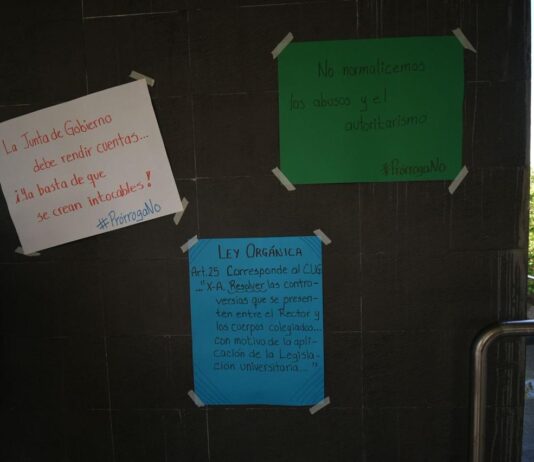 La Junta de Gobierno
debe rendir cuentas...
¡Ya basta de que
se crean intocables!
#PrórrogaNo
No normalicemos
los abusos y el
autoritarismo
#PrórrogaNo
LEY ORGÁNICA
Art.25 Corresponde al CUG
..."X-A. Resolver las contro-
versias que se presen-
ten entre el Rector y
los cuerpos colegiados...
con motivo de la apli-
cación de la Legisla-
ción universitaria..."